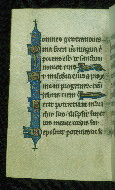 omnes generationes
Quia fecit michi magna qui
potens est et sanctum
nomen eius
Et misericordia eius a proge
nie in progenies timen
tibus eum
Fecit potentiam in bra
chio suo dispersit super
bos mente cordis sui
Deposuit potentes de se